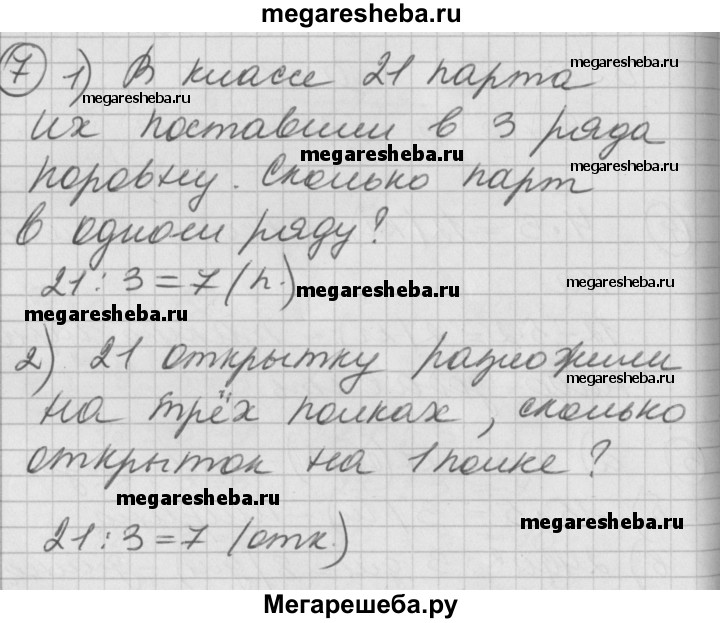 megaresheba.ru
7 1) В классе 21 парта
megaresheba.ru
megaresheba.ru
их поставили в 3 ряда
megaresheba.ru
megaresheba.ru
поровну. Сколько парт
в одном ряду?
21 : 3 = 7 (п.)
megaresheba.ru
megaresheba.ru
megaresheba.ru
2) 21 открытку разложили
megaresheba.ru
на трёх полках, сколько
открыток на 1 полке?
megaresheba.ru
megaresheba.ru
21 : 3 = 7 (отк.)
Мегарешеба.ру